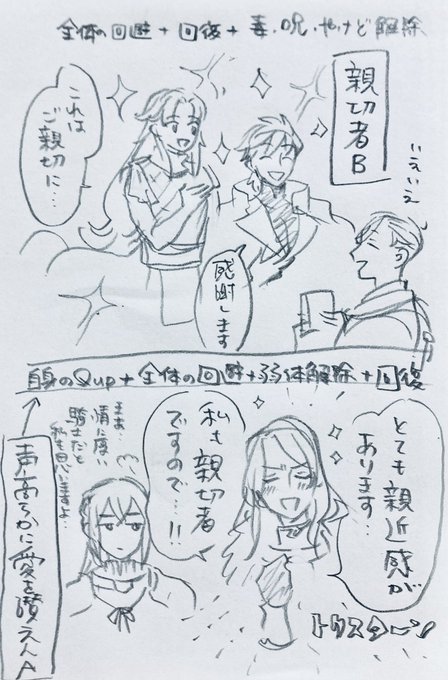 全体の回避+回復+毒・呪・やけど解除
親切者B
これは
ご親切に…
いえいえ
感謝します
自身のQup+全体の回避+弱体解除+回復
とても親近感が
あります…
私も親切者
ですので…!!
まあ…
情に厚い
騎士だと
私も思いますよ…
声高らかに愛を讃えんA
トリスタン